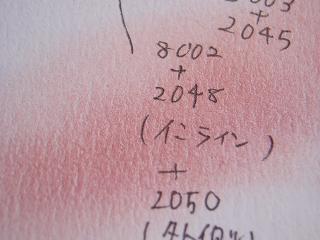 +
2045
8002
+
2048
(インライン)
+
2050